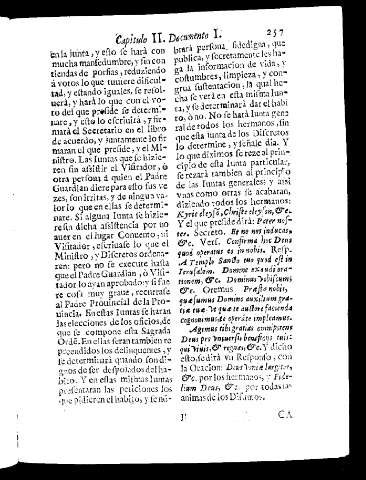 Capitulo II. Documento I. 257
en la junta, y esto se hará con
mucha mansedumbre, y sin con
tiendas de porfias, reduziendo
á votos lo que tuviere dificul-
tad, y estando iguales, se resol-
uerá, y hará lo que con el vo-
to del que preside se determi-
nare, y esto lo escriuirá, y fir-
mará el Secretario en el libro
de acuerdo, y juntamente lo fir
maran el que preside, y el Mi-
nistro. Las Juntas que se hizie-
ren sin assistir el Visitador, ò
otra persona á quien el Padre
Guardian diere para esto sus ve
zes, son irritas, y de ningun va-
lor lo que en ellas se determi-
nare. Si alguna Junta se hizie-
re sin dicha assistencia por no
auer en el lugar Conuento, ni
Visitador, escriuase lo que el
Ministro, y Discretos ordena-
ren: pero no se execute hasta
que el Padre Guardian, ò Visi-
tador lo ayan aprobado: y si fue
re cosa muy graue, recurrase
al Padre Prouincial de la Pro-
uincia. En estas Juntas se haran
las elecciones de los oficios, de
que se compone esta Sagrada
Ordē. En ellas seran tambien re
prendidos los delinquentes, y
se determinará quando son di-
gnos de ser despojados del ha-
bito. Y en estas mismas Juntas
presentaran las peticiones los
que pidieren el habito, y se nō-
brará persona fidedigna, que
publica, y secretamente les ha-
ga la informacion de vida, y
costumbres, limpieza, y con-
grua sustentacion, la qual he-
cha se verá en esta misma Iun-
ta, y se determinará dar el habi
to, ò no. No se hará Iunta gene
ral de todos los hermanos, sin
que esta Iunta de los Discretos
lo determine, y señale dia. Y
lo que diximos se reze al prin-
cipio de esta Iunta particular,
se rezará tambien al principio
de las Iuntas generales; y assi
vnas como otras se acabaran,
diziendo todos los hermanos:
Kyrie eleyson, Christe eleyson, &c.
Y el que preside dirà: Pater nos-
ter. Secreto. Et ne nos inducas,
&c. Vers. Confirma hoc Deus
quod operatus es in nobis. Resp.
A Templo Sancto tuo quod est in
Ierusalem. Domine exaudi ora-
tionem, &c. Dominus vobiscum
&c. Oremus Præsta nobis,
quæsumus Domine auxilium gra-
tiæ tuæ vt quæ te auctore facienda
cognouimus, te operāte impleamus.
Agimus tibi gratias omnipotens
Deus pro vniuersis beneficijs tuis:
qui viuis, & regnas, &c. Y dicho
esto se dirá vn Responso, con
la Oracion: Deus veniæ largitor,
&c. por los hermanos, y Fide-
lium Deus, &c. por todas las
animas de los Difuntos.
CA